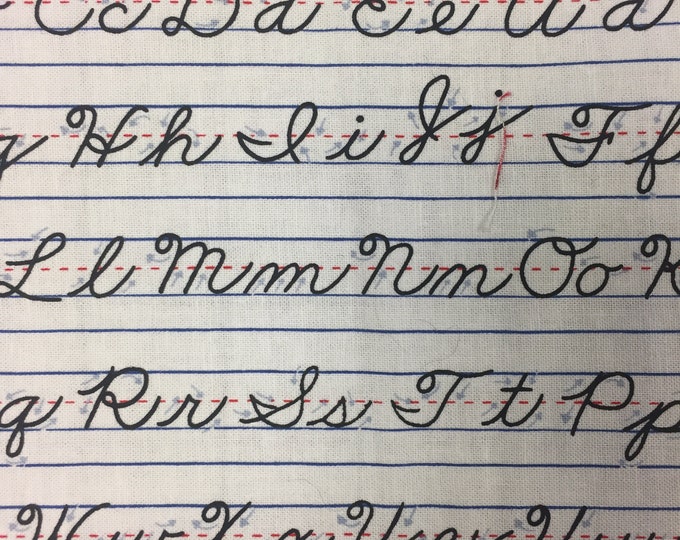 Cc Dd Ee Ud
g Hh Ii Jj Ff
Ll Mm Nn Oo K
q Rr Ss Tt Pp